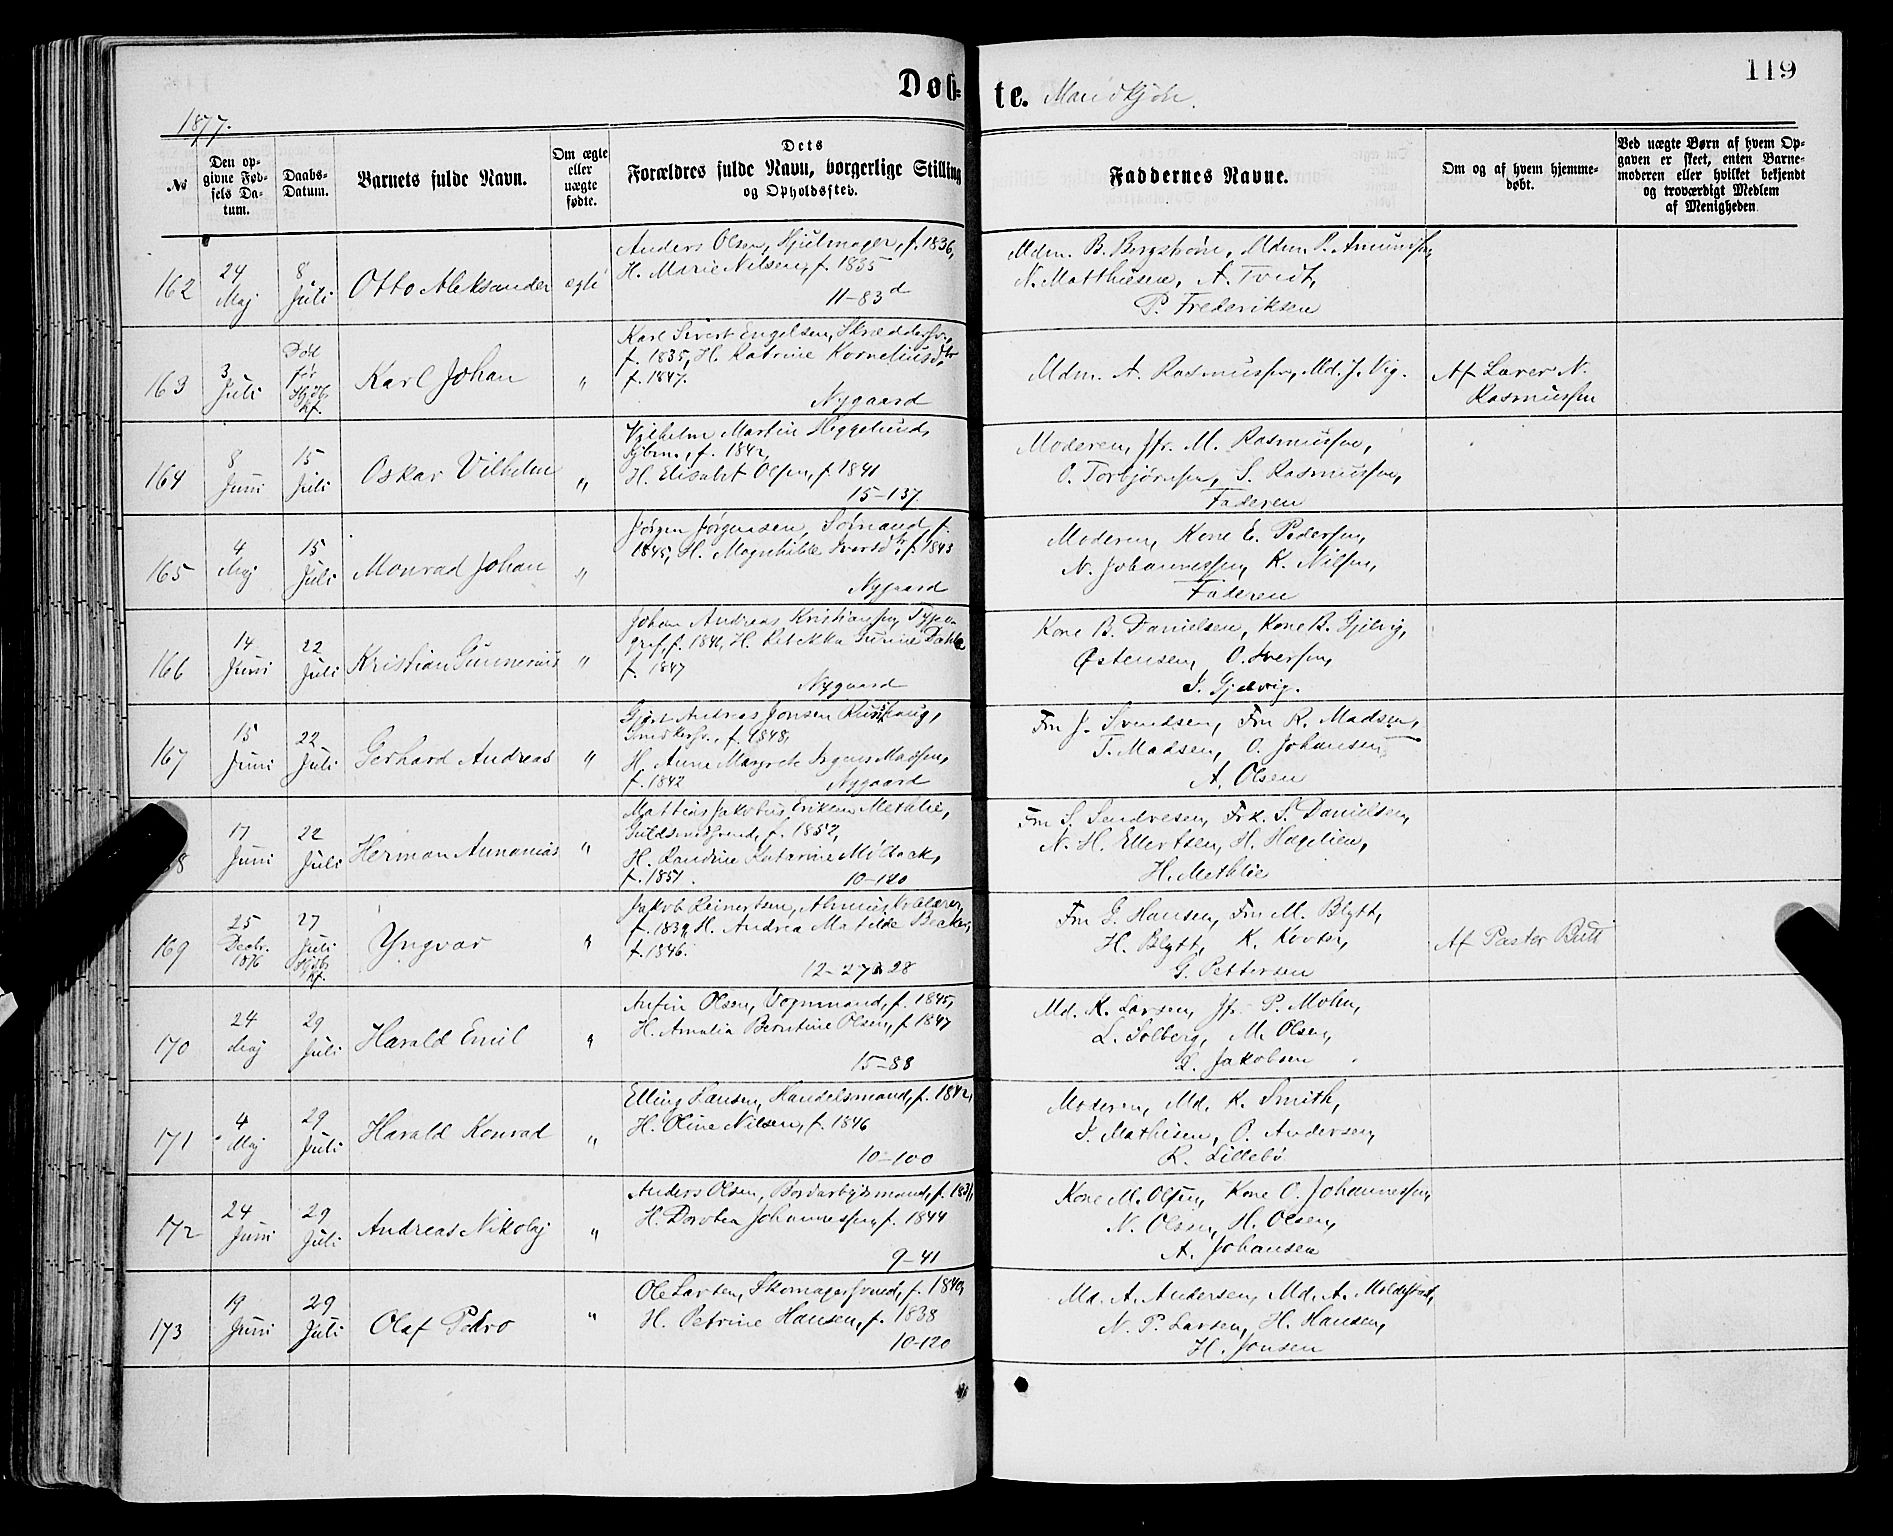 119
Døb-te. Mandkjøn.
1877.
No
Den op-
givne Fød-
sels Da-
tum.
Daabs-
Datum.
Barnets fulde Navn.
Om ægte
eller
uægte
fødte.
Dets
Forældres fulde Navn, borgerlige Stilling
og Opholdssted.
Faddernes Navne.
Om og af hvem hjemme-
døbt.
Ved uægte Børn af hvem Op-
gaven er skeet, enten Barne-
moderen eller hvilket bekjendt
og troværdigt Medlem
af Menigheden.
162 24 Maj 8 Juli Otto Aleksander ægte
Anders Olsen, Hjulmager, f. 1836,
H. Marie Nilsen, f. 1835
11-83d
Mdm. B. Bergstrøm, Mdm P. Amundsen,
N. Matthiesen, A. Tvedt,
P. Frederiksen
163 3 Juli Død før Hjdb. Kf. Karl Johan "
Karl Sivert Engelsen, Skræddersv.,
f. 1835, H. Katrine Korneliusdtr
f. 1847.
Nygaard
Mdm. A. Rasmussen, Md. J. Vig.
Af Lærer N.
Rasmussen
164 8 Juni 15 Juli Oskar Vilhelm "
Vilhelm Martin Heggelund,
f. 1842,
H. Elisabet Olsen, f. 1841
15-137
Moderen, Jfr. M. Rasmussen,
O. Torbjørnsen, S. Rasmussen,
Faderen
165 4 Maj 15 Juli Monrad Johan "
Jørgen Jørgensen, Sømand, f.
1845, H. Magnhilde Iversdtr, f. 1843
Nygaard
Moderen, Kone E. Pedersen,
N. Johannessen, K. Nilsen,
Faderen
166 14 Juni 22 Juli Kristian Gunnerius "
Johan Andreas Kristiansen, Typo-
graf, f. 1846, H. Rebekka Gurine Dahle
f. 1847
Nygaard
Kone B. Danielsen, Kone B. Gjelvig,
Østensen, O. Iversen,
J. Gjelvig.
167 15 Juni 22 Juli Gerhard Andreas "
Gjert Andreas Jonsen Rusthaug,
Snedkersv., f. 1848,
H. Anne Margrete Madsen,
f. 1842 Nygaard
Fru J. Svendsen, Fru K. Madsen,
T. Madsen, O. Johansen,
A. Olsen
17 Juni 22 Juli Herman Annanias "
Mathias Jakobus Eriksen Methlie,
Guldsmedsvend, f. 1852,
H. Randine Katarine Milback,
f. 1851. 10-120
Fru S. Sendresen, Frk. S. Danielsen,
N. H. Ellertsen, H. Hagelien,
H. Methlie
169 25 Decbr. 1876 27 Juli Hjdb. Kf. Yngvar "
Jakob Reinertsen, Almueskolelærer,
f. 1839, H. Andrea Matilde Becker,
f. 1846.
12-27 & 28
Fru G. Hansen, Fru M. Blytt,
H. Blytt, K. Kooter,
G. Pettersen
Af Pastor Bull
170 24 Maj 29 Juli Harald Emil "
Anfin Olsen, Vognmand, f. 1845,
H. Amalia Berntine Olsen, f. 1847
15-88
Md. K. Larsen, Jfr P. Mohn,
L. Solberg, M. Olsen,
L. Jakobsen
171 4 Maj 29 Juli Harald Konrad "
Elling Hansen, Handelsmand, f. 1842,
H. Oline Nilsen, f. 1846
10-100
Moderen, Md. K. Smith,
J. Mathisen, O. Andersen,
R. Lillebø
172 24 Juni 29 Juli Andreas Nikolaj "
Anders Olsen, Bordarbejdsmand, f. 1831,
H. Dorotea Johannessen, f. 1844
9-41
Kone M. Olsen, Kone O. Johannessen,
N. Olsen, H. Olsen,
A. Johansen
173 19 Juni 29 Juli Olaf Pedro "
Ole Larsen, Skomagersvend, f. 1840,
H. Petrine Hansen, f. 1838
10-120
Md. A. Andersen, Md. A. Moldestad,
N. P. Larsen, H. Hansen,
H. Jonsen